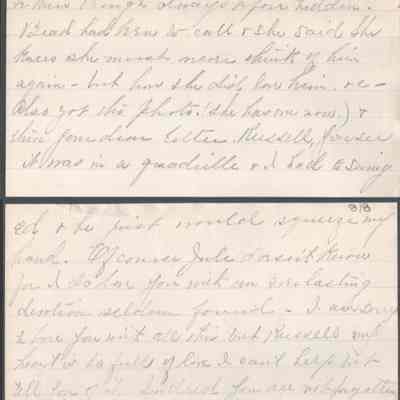 always
had been to call & she said she
knows she must never think of him
again - but how she did love him. &c -
Also got his photo! (she has one now.) &
then Russell,
it was in a quadrille & I had to swing
3/3
ed & he just would squeeze my
hand. Of course Jule doesn't know
for I do love you with an everlasting
devotion seldom found - I am sorry
to bore you with all this but Russell my
heart is so full of love I can't help but
tell you of it. Indeed you are not forgotten